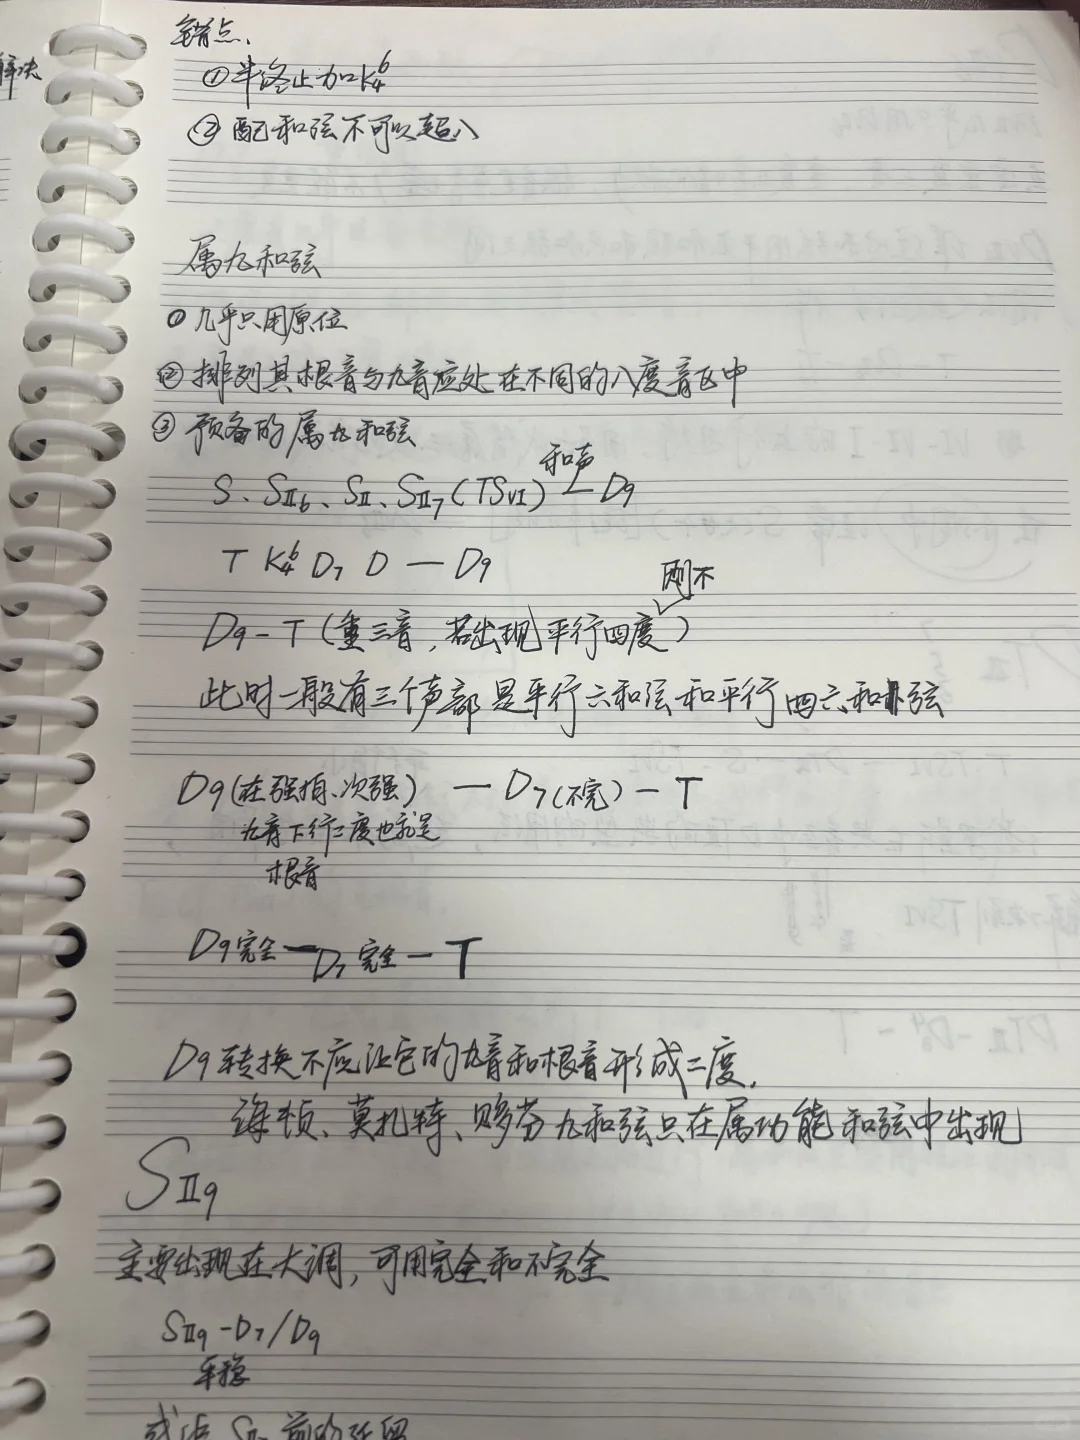 解决
错点、
①半终止加K64
②配和弦不可以超八
属九和弦
①几乎只用原位
②排列其根音与九音应处在不同的八度音区中
③预备的属九和弦
和声
S、SⅡ6、SⅡ、SⅡ7(TSⅥ)—D9
T K64 D7 D — D9
则不
D9-T(重三音,若出现平行四度)
此时一般有三个声部是平行六和弦和平行四六和弦
D9(在强拍、次强) — D7(不完) - T
九音下行二度也就是
根音
D9完全—D7完全—T
D9转换不应让它的九音和根音形成二度.
海顿、莫扎特、贝多芬九和弦只在属功能和弦中出现
SⅡ9
主要出现在大调,可用完全和不完全
SⅡ9-D7/D9
平稳